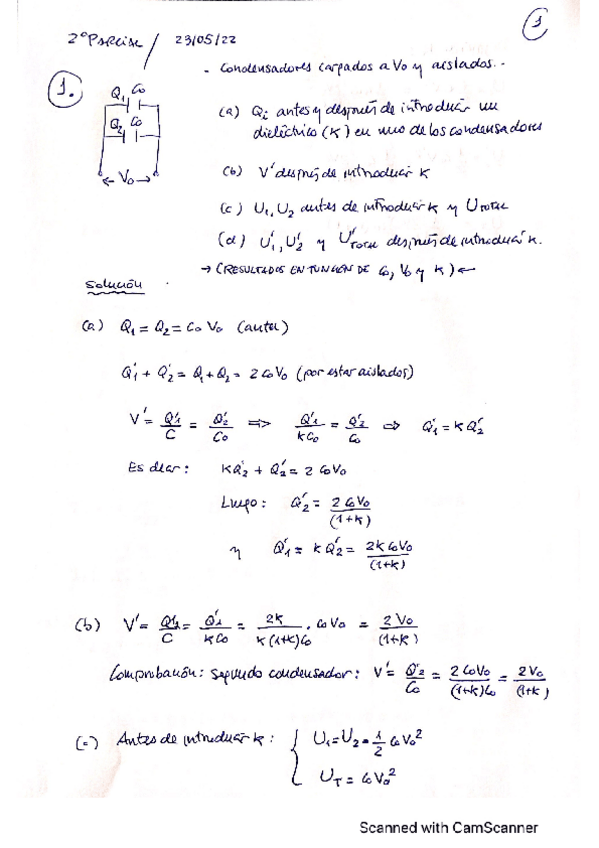 1
2º Parcial / 23/05/22
- Condensadores cargados a V₀ y aislados.-
1.
Q₁ C₀
Q₂ C₀
← V₀ →
(a) Qᵢ antes y después de introducir un
dieléctrico (K) en uno de los condensadores
(b) V' después de introducir K
(c) U₁, U₂ antes de introducir K y U_TOTAL
(d) U₁', U₂' y U'_TOTAL después de introducir K.
→ (RESULTADOS EN FUNCIÓN DE C₀, V₀ y K) ←
Solución
(a) Q₁ = Q₂ = C₀ V₀ (antes)
Q₁' + Q₂' = Q₁ + Q₂ = 2 C₀V₀ (por estar aislados)
V' = Q₁'/C = Q₂'/C₀ ⇒ Q₁'/KC₀ = Q₂'/C₀ ⇒ Q₁' = K Q₂'
Es decir: KQ₂' + Q₂' = 2 C₀V₀
Luego: Q₂' = 2 C₀V₀/(1+K)
y Q₁' = K Q₂' = 2K C₀V₀/(1+K)
(b) V' = Q₁'/C = Q₁'/KC₀ = 2K/K(1+K)C₀ · C₀V₀ = 2V₀/(1+K)
Comprobación: segundo condensador: V' = Q₂'/C₀ = 2C₀V₀/(1+K)C₀ = 2V₀/(1+K)
(c) Antes de introducir K: { U₁ = U₂ = 1/2 C₀V₀²
U_T = C₀V₀²
Scanned with CamScanner